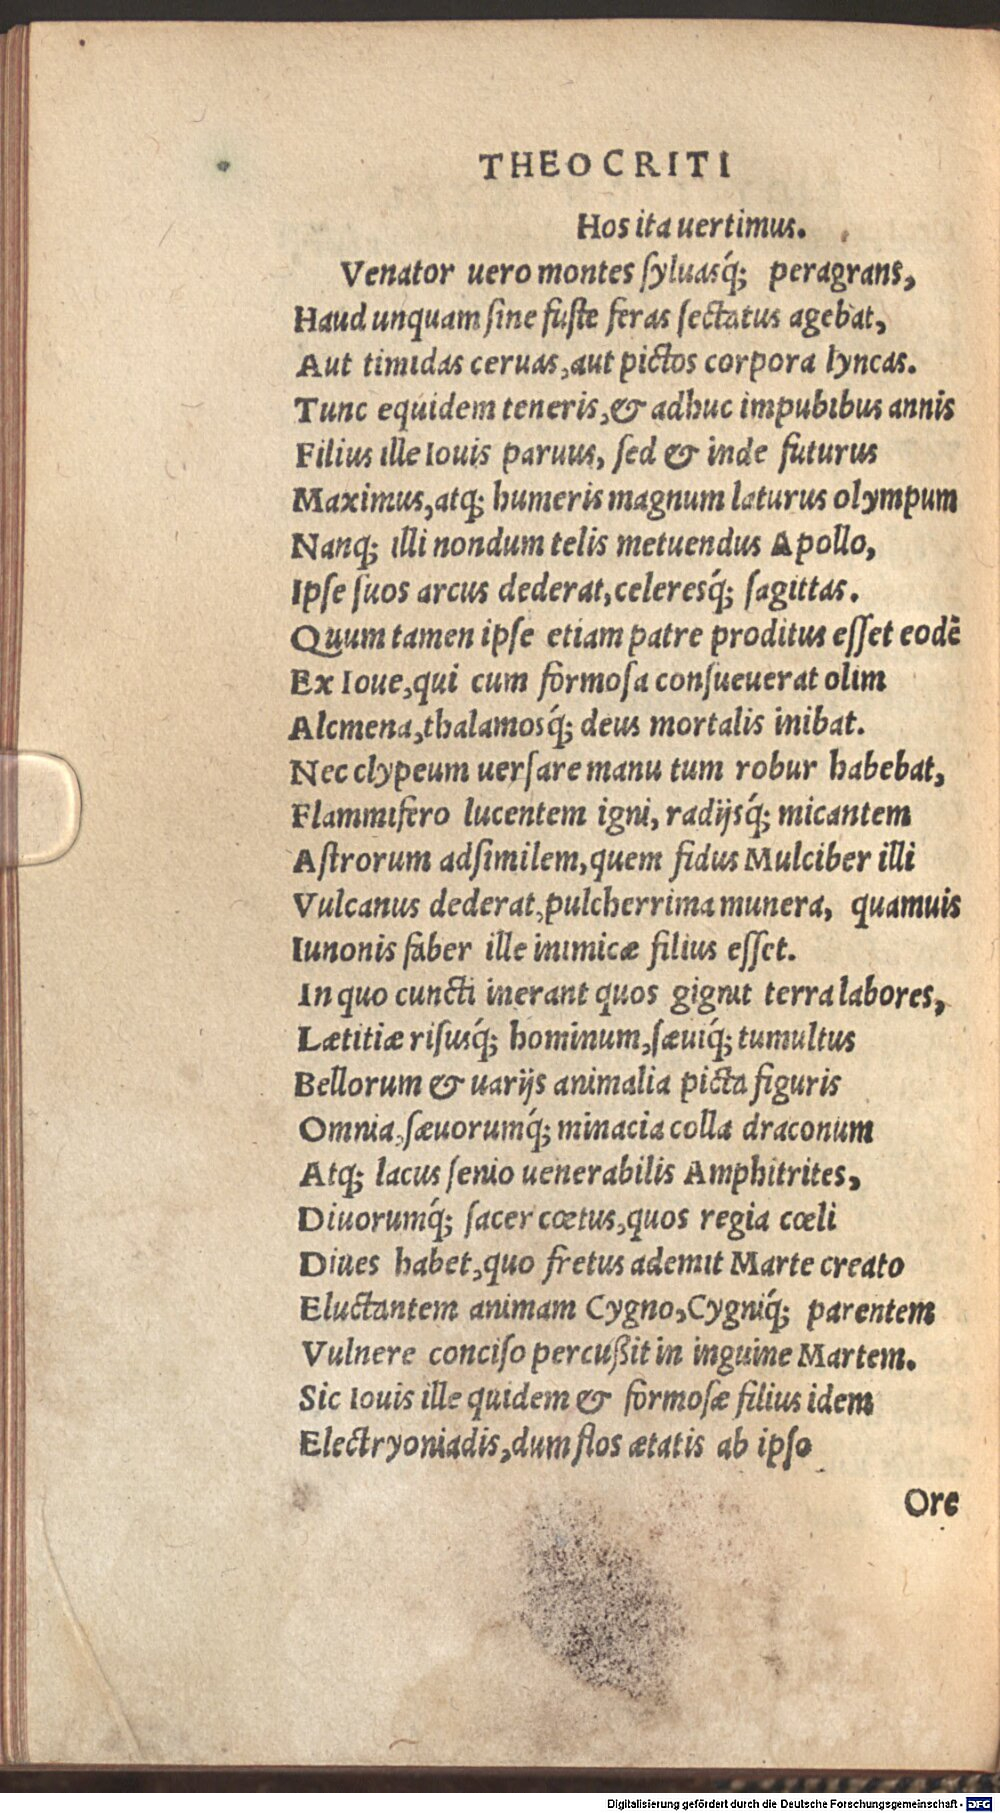 THEOCRITI
Hos ita uertimus.
Venator uero montes ſyluasq́; peragrans,
Haud unquam ſine fuſte feras ſectatus agebat,
Aut timidas ceruas, aut pictos corpora lyncas.
Tunc equidem teneris, & adhuc impubibus annis
Filius ille Iouis paruus, ſed & inde futurus
Maximus, atq; humeris magnum laturus olympum
Nanq; illi nondum telis metuendus Apollo,
Ipſe ſuos arcus dederat, celeresq́; ſagittas.
Quum tamen ipſe etiam patre proditus eſſet eodē
Ex Ioue, qui cum formoſa conſueuerat olim
Alcmena, thalamosq́; deus mortalis inibat.
Nec clypeum uerſare manu tum robur habebat,
Flammifero lucentem igni, radijsq́; micantem
Aſtrorum adſimilem, quem fidus Mulciber illi
Vulcanus dederat, pulcherrima munera, quamuis
Iunonis faber ille inimicæ filius eſſet.
In quo cuncti inerant quos gignit terra labores,
Lætitiæ riſusq́; hominum, ſæuiq́; tumultus
Bellorum & uarijs animalia picta figuris
Omnia, ſæuorumq́; minacia colla draconum
Atq; lacus ſenio uenerabilis Amphitrites,
Diuorumq́; ſacer cœtus, quos regia cœli
Diues habet, quo fretus ademit Marte creato
Eluctantem animam Cygno, Cygniq́; parentem
Vulnere conciſo percußit in inguine Martem.
Sic Iouis ille quidem & formoſæ filius idem
Electryoniadis, dum flos ætatis ab ipſo
Ore
Digitalisierung gefördert durch die Deutsche Forschungsgemeinschaft - DFG